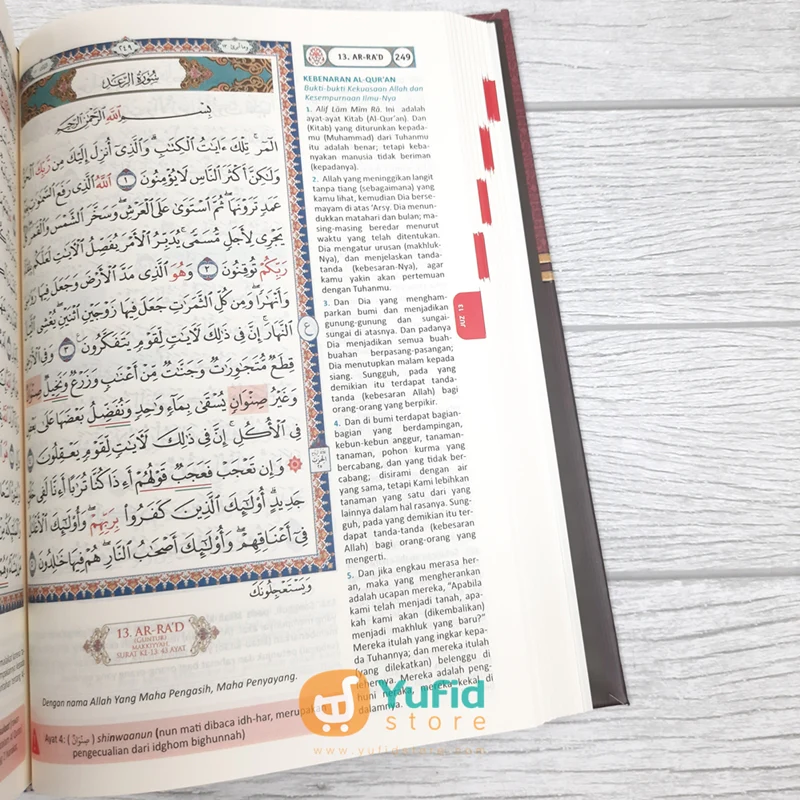 ٢٤٩
سُورَةُ الرَّعْدِ
بِسْمِ اللَّهِ الرَّحْمَٰنِ الرَّحِيمِ
الٓمٓرۚ تِلْكَ ءَايَٰتُ ٱلْكِتَٰبِۗ وَٱلَّذِىٓ أُنزِلَ إِلَيْكَ مِن رَّبِّكَ
وَلَٰكِنَّ أَكْثَرَ ٱلنَّاسِ لَا يُؤْمِنُونَ ١ ٱللَّهُ ٱلَّذِى رَفَعَ ٱلسَّمَٰوَٰتِ
عَمَدٍ تَرَوْنَهَاۖ ثُمَّ ٱسْتَوَىٰ عَلَى ٱلْعَرْشِۖ وَسَخَّرَ ٱلشَّمْسَ وَٱلْقَمَرَ
يَجْرِى لِأَجَلٍ مُّسَمًّىۚ يُدَبِّرُ ٱلْأَمْرَ يُفَصِّلُ ٱلْءَايَٰتِ لَعَلَّكُم
رَبِّكُمْ تُوقِنُونَ ٢ وَهُوَ ٱلَّذِى مَدَّ ٱلْأَرْضَ وَجَعَلَ فِيهَا
وَأَنْهَٰرًاۖ وَمِن كُلِّ ٱلثَّمَرَٰتِ جَعَلَ فِيهَا زَوْجَيْنِ ٱثْنَيْنِۖ يُغْشِى
ٱلنَّهَارَۚ إِنَّ فِى ذَٰلِكَ لَءَايَٰتٍ لِّقَوْمٍ يَتَفَكَّرُونَ ٣ وَفِى
قِطَعٌ مُّتَجَٰوِرَٰتٌ وَجَنَّٰتٌ مِّنْ أَعْنَٰبٍ وَزَرْعٌ وَنَخِيلٌ
وَغَيْرُ صِنْوَانٍ يُسْقَىٰ بِمَآءٍ وَٰحِدٍ وَنُفَضِّلُ بَعْضَهَا عَلَىٰ
فِى ٱلْأُكُلِۚ إِنَّ فِى ذَٰلِكَ لَءَايَٰتٍ لِّقَوْمٍ يَعْقِلُونَ
۞ وَإِن تَعْجَبْ فَعَجَبٌ قَوْلُهُمْ أَءِذَا كُنَّا تُرَٰبًا أَءِنَّا لَفِى
جَدِيدٍۗ أُو۟لَٰٓئِكَ ٱلَّذِينَ كَفَرُوا۟ بِرَبِّهِمْۖ وَأُو۟لَٰٓئِكَ
فِىٓ أَعْنَاقِهِمْۖ وَأُو۟لَٰٓئِكَ أَصْحَٰبُ ٱلنَّارِۖ هُمْ فِيهَا خَٰلِدُونَ
وَيَسْتَعْجِلُونَكَ
13. AR-RA'D
(GUNTUR)
MAKKIYYAH
SURAT KE-13: 43 AYAT
Dengan nama Allah Yang Maha Pengasih, Maha Penyayang.
Ayat 4: (صِنْوَانٌ) shinwaanun (nun mati dibaca idh-har, merupakan
pengecualian dari idghom bighunnah)
13. AR-RA'D 249
KEBENARAN AL-QUR'AN
Bukti-bukti Kekuasaan Allah dan
Kesempurnaan Ilmu-Nya
1. Alif Lām Mīm Rā. Ini adalah
ayat-ayat Kitab (Al-Qur'an). Dan
(Kitab) yang diturunkan kepada-
mu (Muhammad) dari Tuhanmu
itu adalah benar; tetapi keba-
nyakan manusia tidak beriman
(kepadanya).
2. Allah yang meninggikan langit
tanpa tiang (sebagaimana) yang
kamu lihat, kemudian Dia berse-
mayam di atas 'Arsy. Dia menun-
dukkan matahari dan bulan; ma-
sing-masing beredar menurut
waktu yang telah ditentukan.
Dia mengatur urusan (makhluk-
Nya), dan menjelaskan tanda-
tanda (kebesaran-Nya), agar
kamu yakin akan pertemuan
dengan Tuhanmu.
3. Dan Dia yang mengham-
parkan bumi dan menjadikan
gunung-gunung dan sungai-
sungai di atasnya. Dan padanya
Dia menjadikan semua buah-
buahan berpasang-pasangan;
Dia menutupkan malam kepada
siang. Sungguh, pada yang
demikian itu terdapat tanda-
tanda (kebesaran Allah) bagi
orang-orang yang berpikir.
4. Dan di bumi terdapat bagian-
bagian yang berdampingan,
kebun-kebun anggur, tanaman-
tanaman, pohon kurma yang
bercabang, dan yang tidak ber-
cabang; disirami dengan air
yang sama, tetapi Kami lebihkan
tanaman yang satu dari yang
lainnya dalam hal rasanya. Sung-
guh, pada yang demikian itu ter-
dapat tanda-tanda (kebesaran
Allah) bagi orang-orang yang
mengerti.
5. Dan jika engkau merasa her-
an, maka yang mengherankan
adalah ucapan mereka, "Apabila
kami telah menjadi tanah, apa-
kah kami akan (dikembalikan)
menjadi makhluk yang baru?"
Mereka itulah yang ingkar kepa-
da Tuhannya; dan mereka itulah
(yang dilekatkan) belenggu di
lehernya. Mereka adalah peng-
huni neraka, mereka kekal di
dalamnya.
JUZ 13
Yufid
store